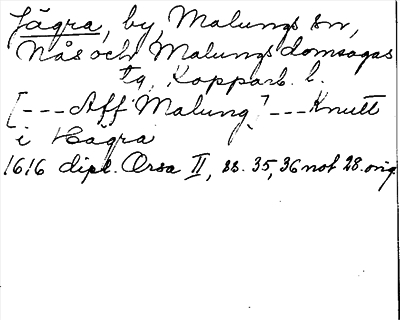 Jägra, by, Malungs sn,
Nås och Malungs domsagas
tg, Kopparb. l.
[---Aff Malung] ---Knutt
i Hägra
1616 dipl. Orsa II, ss. 35, 36 not 28. orig